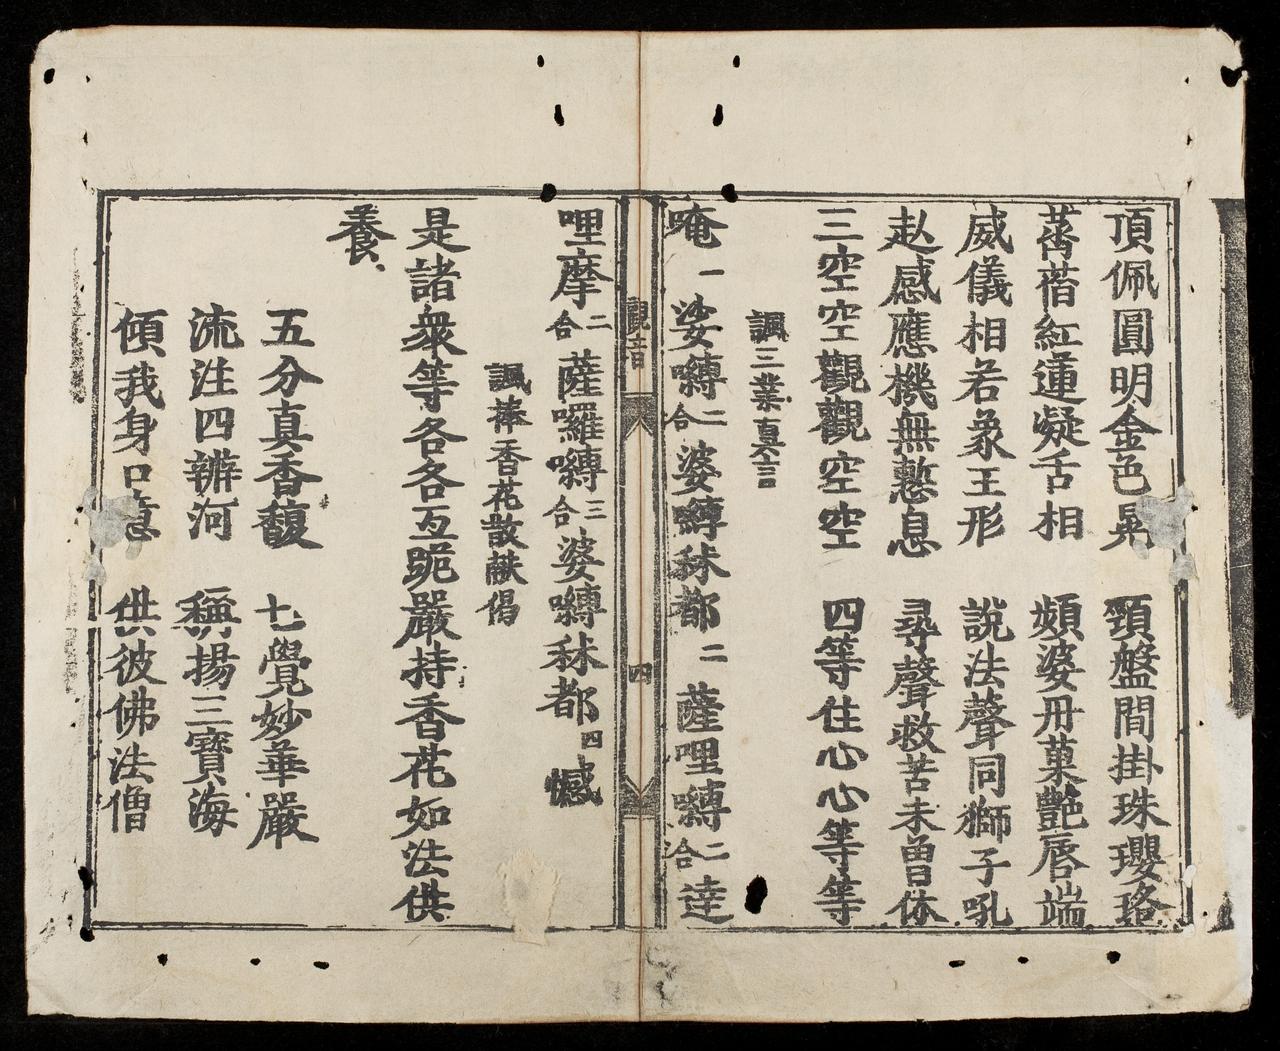 頂佩圓明金色晃　頸盤間掛珠瓔珞
菩蓓紅蓮凝舌相　頻婆丹菓艶唇端
威儀相若象王形　說法聲同獅子吼
赴感應機無憩息　尋聲救苦未曾休
三空空空觀觀空空　四等住心心等等
諷三業真言
唵一娑嚩二合婆嚩秫都二薩哩嚩二合逹
觀音　四
哩摩二合薩囉嚩三合婆嚩秫都四憾
諷捧香花散献偈
是諸衆等各各互跪嚴持香花如法供
養
五分真香馥　七覺妙華嚴
流注四辨河　稱揚三寶海
傾我身口意　供彼佛法僧